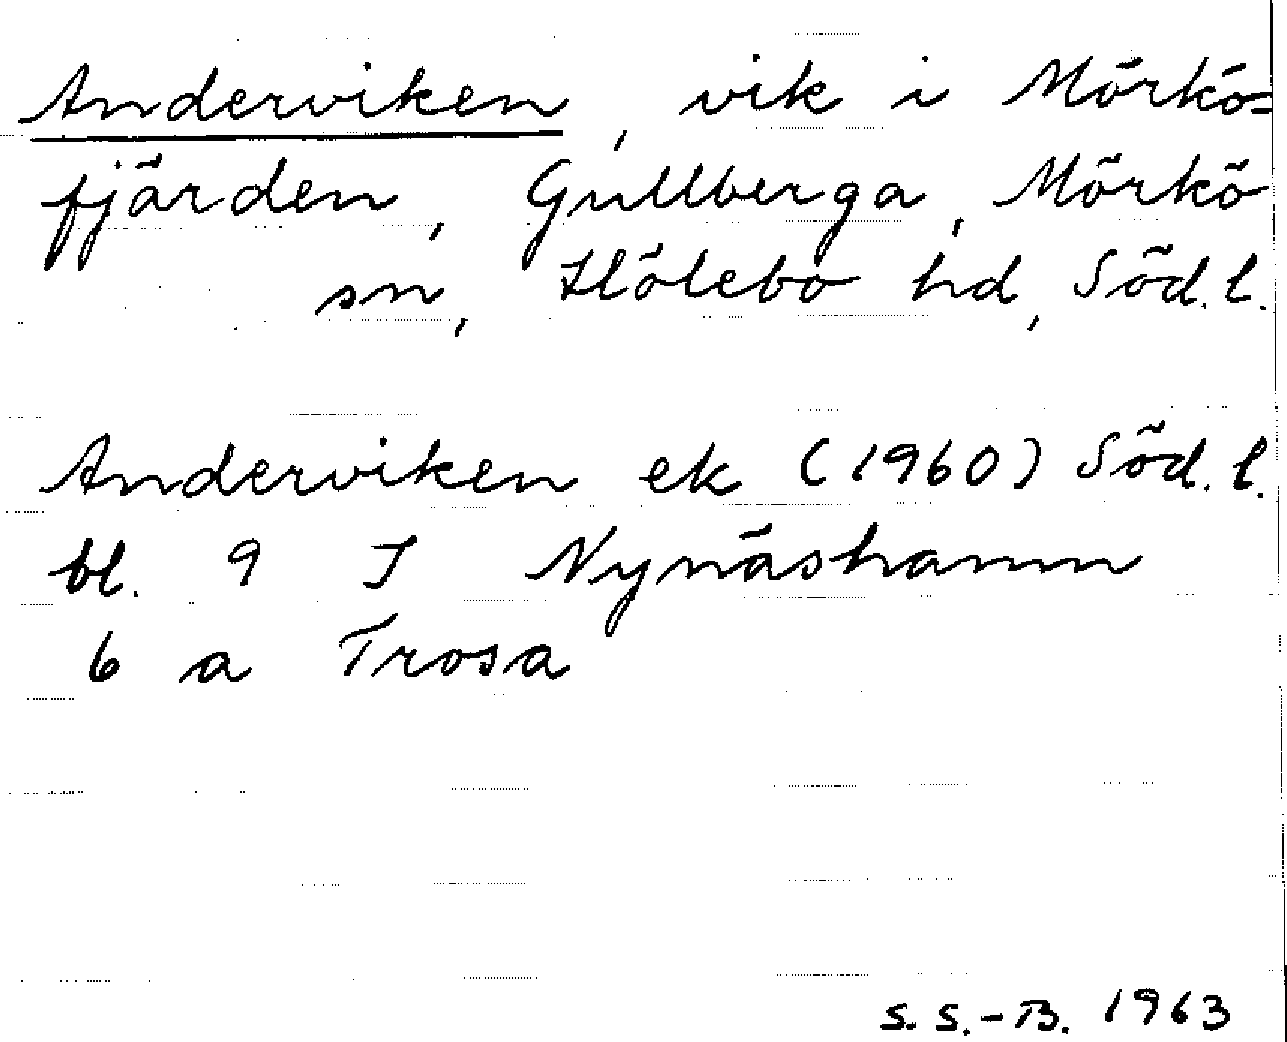 Anderviken, vik i Mörkö=
fjärden, Gullberga, Mörkö
sn, Hölebo hd, Söd. l.
Anderviken ek (1960) Söd. l.
bl. 9 I Nynäshamn
6 a Trosa
S. S.-B. 1963